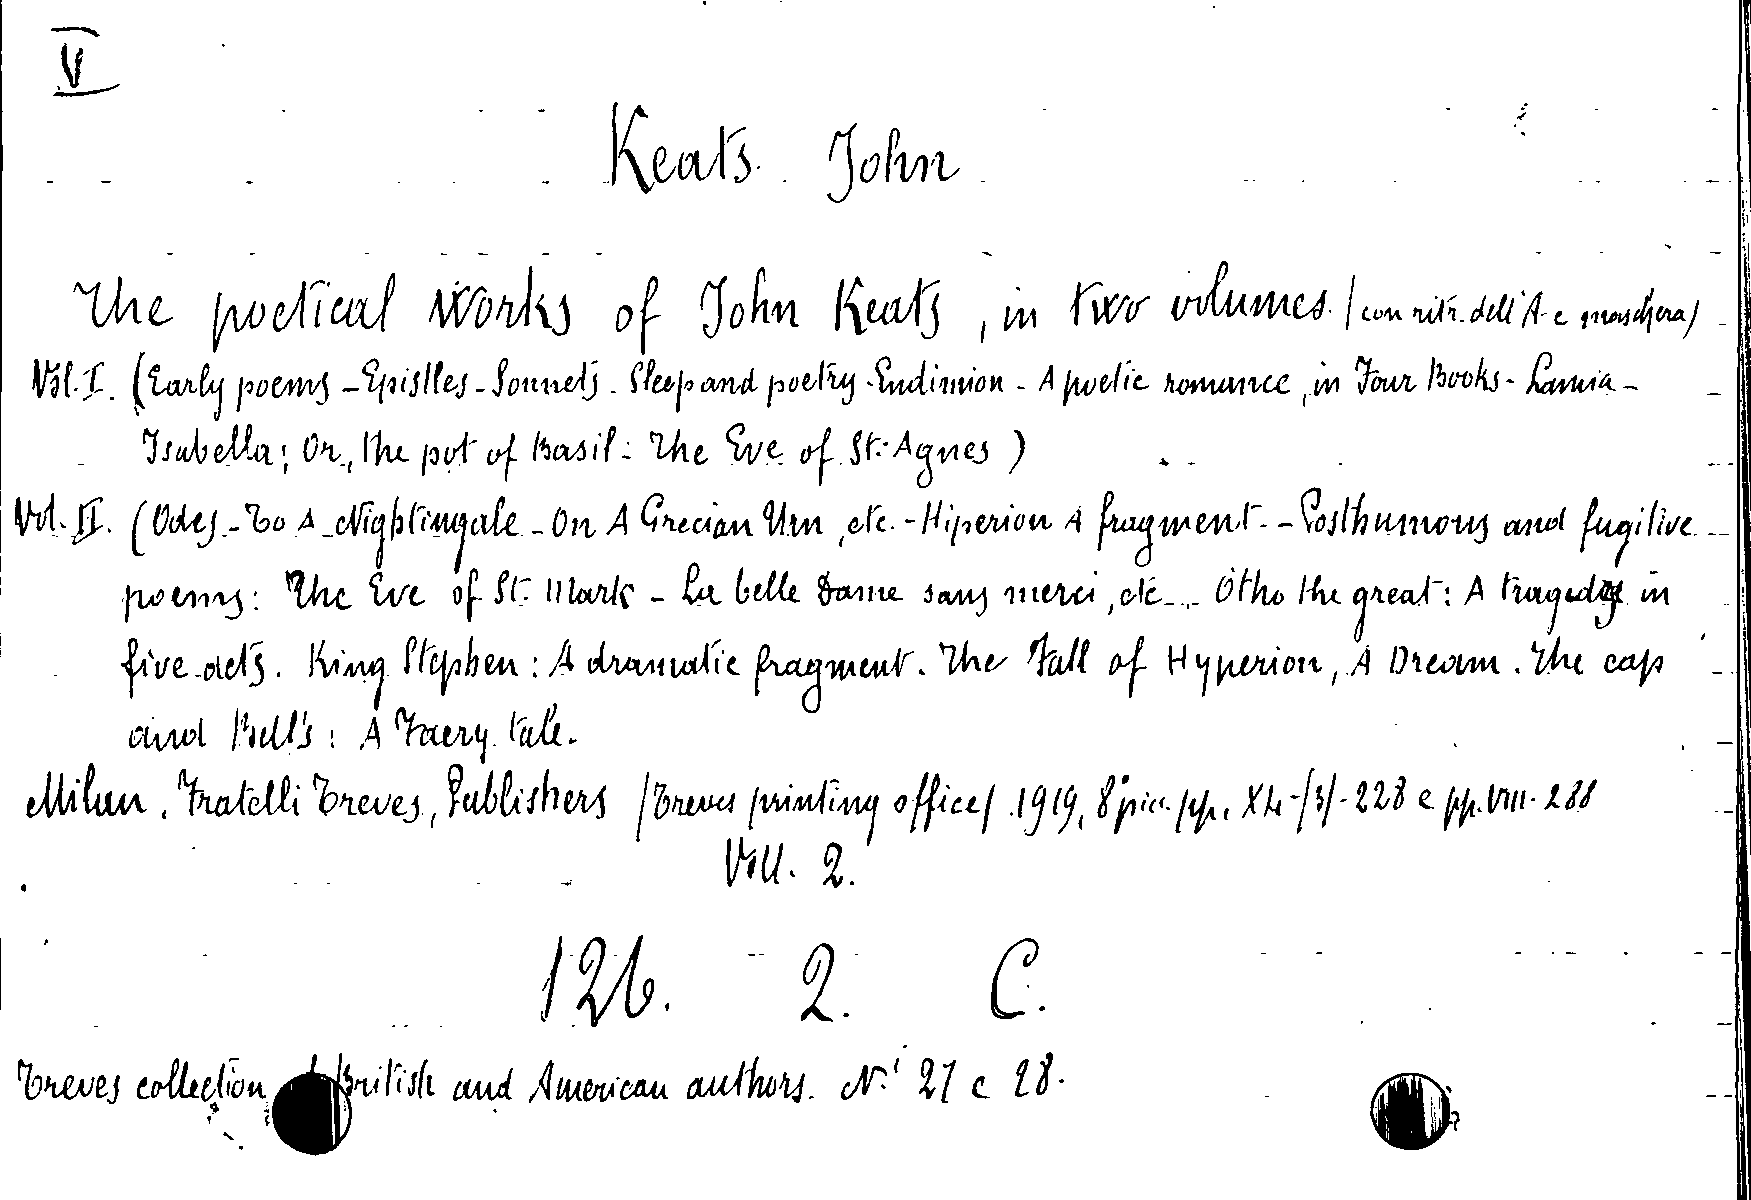 V
Keats John
The poetical Works of John Keats, in two volumes. (con ritr. dell'A. e maschera)
Vol. I. (Early poems - Epistles - Sonnets - Sleep and poetry - Endimion - A poetic romance, in Four Books - Lamia -
Isabella; Or, the pot of Basil: The Eve of St. Agnes)
Vol. II. (Odes - To A Nightingale - On A Grecian Urn, etc. - Hiperion A fragment. - Posthumous and fugitive
poems: The Eve of St. Mark - La belle Dame sans merci, etc - Otho the great: A tragedy in
five acts. King Stephen: A dramatic fragment. The Fall of Hyperion, A Dream. The cap
and Bell's: A Faery tale.
Milan, Fratelli Treves, Publishers (Treves printing office) 1919, 8° picc. pp. XL-(3)-228 e pp. VIII-288
Voll. 2.
126. 2. C.
Treves collection British and American authors. N.i 27 e 28.